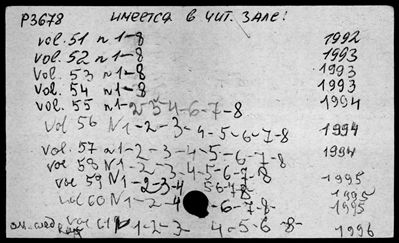 P3678 имеется в чит. зале!
vol. 51 n 1-8 1992
vol. 52 n 1-8 1993
vol. 53 n 1-8 1993
vol. 54 n 1-8 1993
vol. 55 n 1-2-3-4-6-7-8 1994
vol 56 N1-2-3-4-5-6-7-8 1994
vol. 57 n 1-2-3-4-5-6-7-8 1994
vol 58 N1-2-3-4-5-6-7-8
vol 59 N1-2-3-4 5-6-7-8 1995
vol 60 N1-2-4 -6-7-8- 1995
1995
vol 61 N 1-2-3- 4-5-6 8- 1996